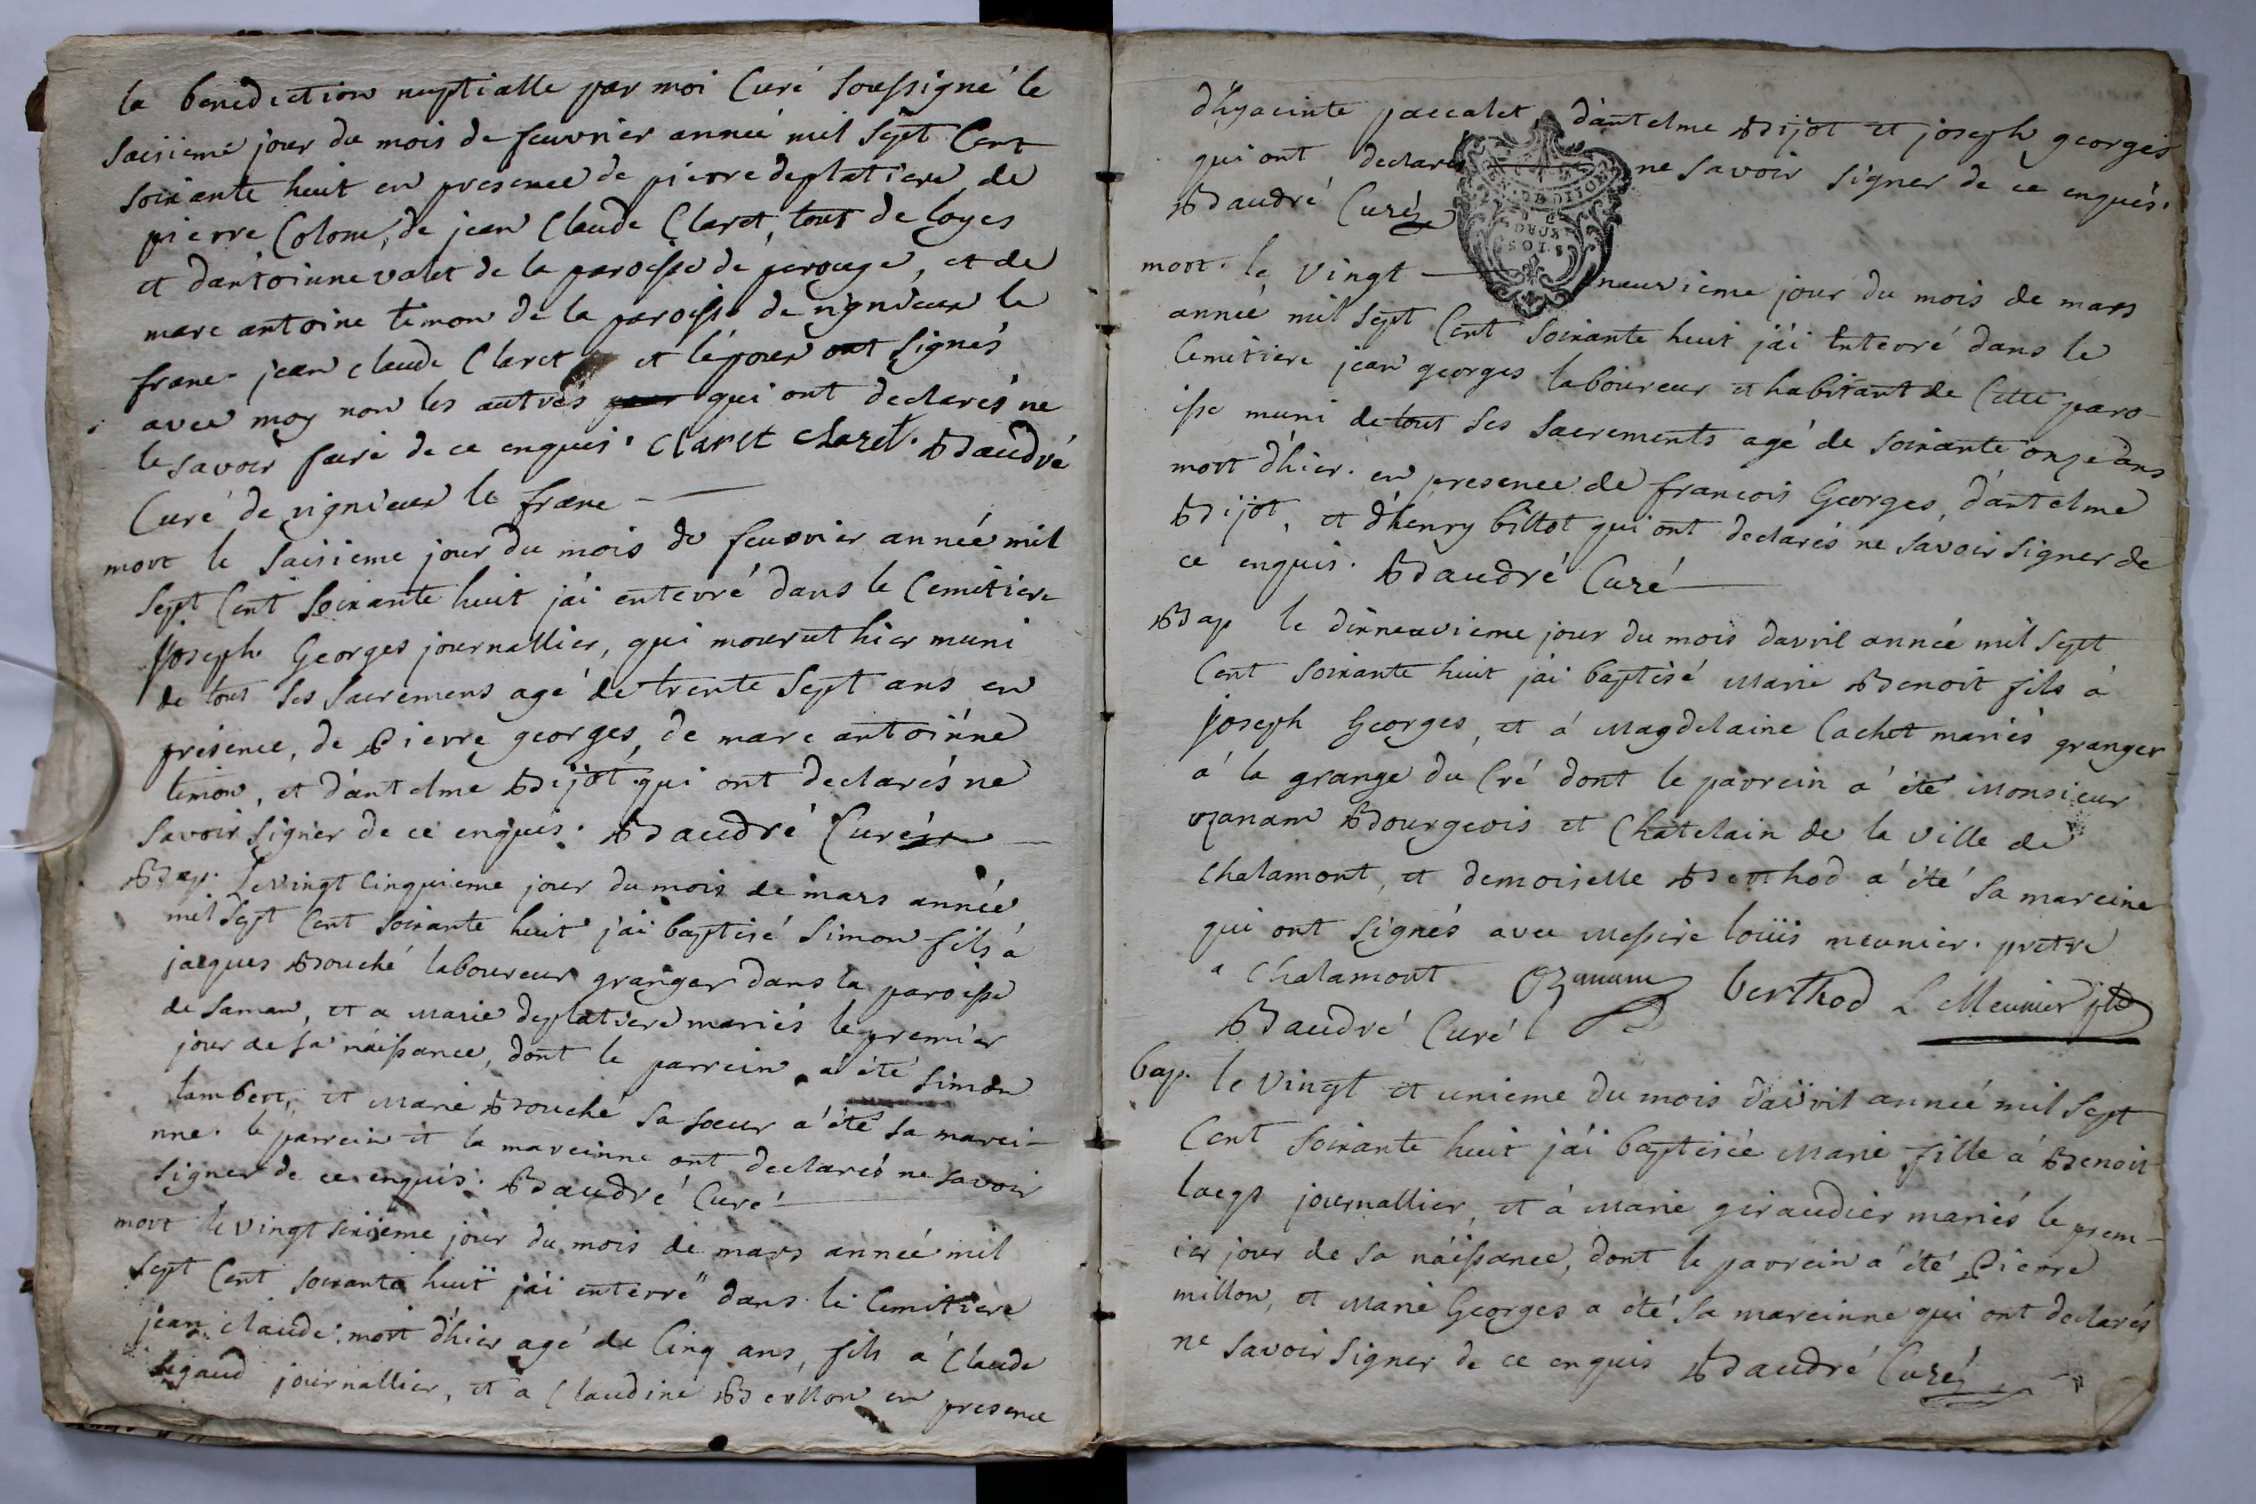 la benediction nuptialle par moi Curé soussigné le
saisieme jour du mois de feuvrier anneé mil sept Cent
soixante huit en presence de pierre deplatiere de
pierre Colom, de jean Claude Claret, tout de loyes
et dantoinne valet de la paroisse de perouge, et de
marc antoine timon de la paroisse de rignieux le
franc jean claude Claret et lépoux ont signés
avec moy non les autres qui ont declarés ne
le savoir faire de ce enquis. Claret Claret. Baudré
Curé de rignieux le franc
mort le saisieme jour du mois de feuvrier anneé mil
sept Cent soixante huit j'ai enterré dans le Cemitiere
joseph Georges journallier, qui mourut hier muni
de tout ses sacremens agé de trente sept ans en
présence, de Pierre georges, de marc antoinne
timon, et dántelme Bijot. qui ont declarés ne
savoir signer de ce enquis. Baudré Curé
Bap. Le vingt Cinquieme jour du mois de mars anneé
mil sept Cent soixante huit j'ai baptisé simon fils á
jacques Bouché laboureur granger dans la paroisse
de saman, et a Marie deplatiere mariés le premier
jour de sa náissance, dont le parrein a été simon
lambert, et Marie Bouché sa soeur a été sa marei-
nne. le parrein et la mareinne ont declarés ne savoir
signer de ce enquis. Baudré Curé
mort le vingt sixieme jour du mois de mars anneé mil
sept Cent soixante huit j'ai enterré dans le Cemitiere
jean claude mort d'hier agé de Cinq ans, fils á Claude
rigaud journallier, et a Claudine Berllon en presence
d'hyacinte paccalet, dántelme Bijot et joseph georges
qui ont declarés ne savoir signer de ce enquis.
Baudré Curé
mort. le vingt neuvieme jour du mois de mars
anneé mil sept Cent soixante huit j'ai enterré dans le
Cemitiere jean georges laboureur et habitant de Cette paro-
isse muni de tout ses sacrements agé de soixante onze ans
mort d'hier. en presence de francois Georges, dántelme
Bijot, et d'henry billot qui ont declarés ne savoir signer de
ce enquis. Baudré Curé
Bap le dixneuvieme jour du mois davril anneé mil sept
Cent soixante huit j'ai baptisé Marie Benoit fils á
joseph Georges, et á Magdelaine Cachet mariés granger
á la grange du Cré dont le parrein a été Monsieur
ozanam Bourgeois et Chatelain de la ville de
Chalamont, et demoiselle Berthod a été sa mareine
qui ont signés avec Messire loüis meunier. pretre
a Chalamont Ozanam berthod L Meunier ptre
Baudré Curé
bap. le vingt et unieme du mois davril anneé mil sept
Cent soixante huit j'ai baptiseé Marie fille á Benoit
journallier, et á Marie giraudier mariés le prem-
ier jour de sa náissance, dont le parrein a été Pierre
millon, et Marie Georges a été sa mareinne qui ont declarés
ne savoir signer de ce enquis Baudré Curé